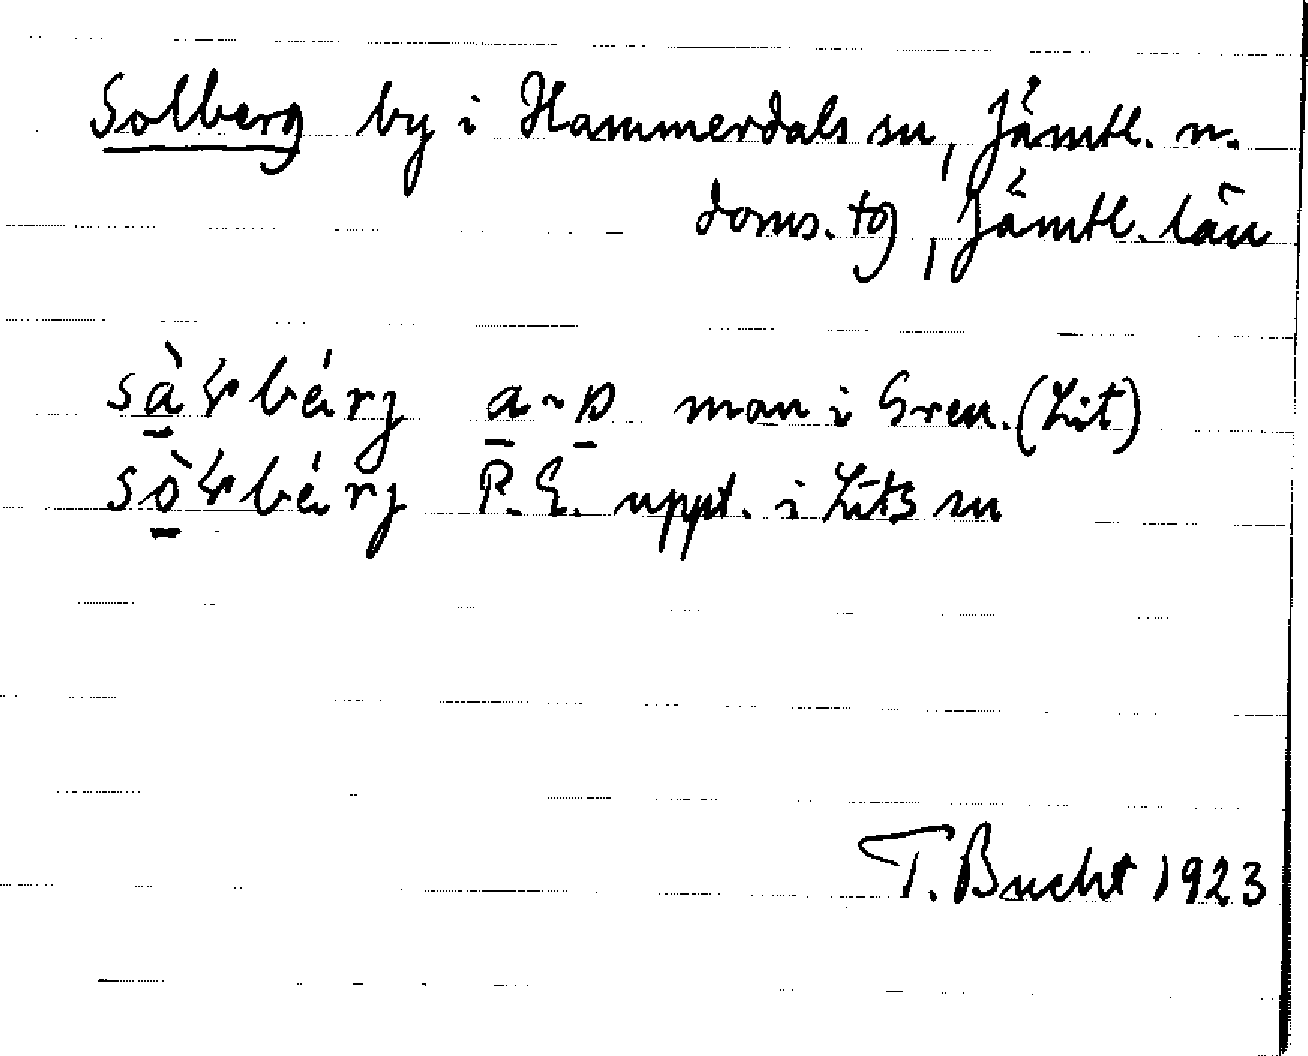 Solberg by i Hammerdals sn, Jämtl. n.
doms. tg, Jämtl. län
man i Gren. (Lit)
P.E. uppt. i Lits sn
T. Bucht 1923